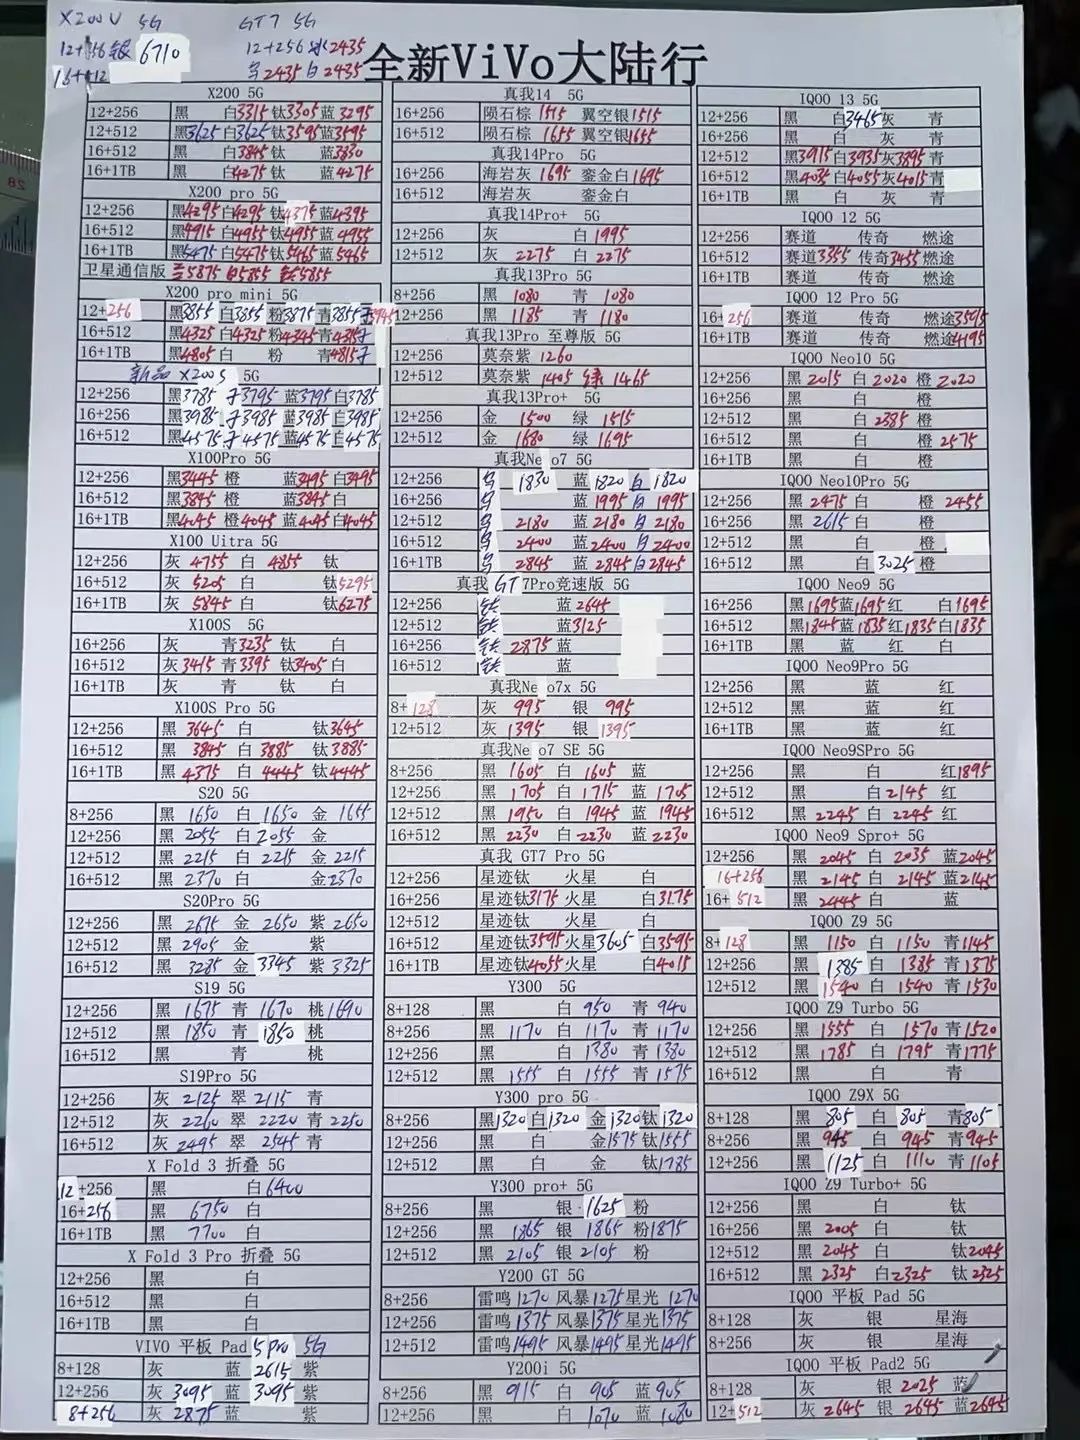 X200U 5G
12+256银 6710
16+512
GT7 5G
12+256 冰2435
2435 白 2435
全新ViVo大陆行
X200 5G
12+256 黑 白3315 钛3305 蓝3295
12+512 黑3625 白3625 钛3595 蓝3595
16+512 黑 白3845 钛 蓝3830
16+1TB 黑 白4275 钛 蓝4275
X200 pro 5G
12+256 黑4295 白4295 钛4375 蓝4395
16+512 黑4915 白4955 钛4955 蓝4955
16+1TB 黑5475 白5475 钛5465 蓝5465
卫星通信版 5875 白5855 钛5855
X200 pro mini 5G
12+256 黑3855 白3855 粉3875 青3855
16+512 黑4325 白4325 粉4345 青4315
16+1TB 黑4805 白 粉 青4815
新品 X200S 5G
12+256 黑3785 3795 蓝3795 白3785
16+256 黑3985 3985 蓝3985 白3985
16+512 黑4575 4575 蓝4575 白4575
X100Pro 5G
12+256 黑3445 橙 蓝3495 白3495
16+512 黑3895 橙 蓝3845 白
16+1TB 黑4045 橙4045 蓝4045 白4045
X100 Uitra 5G
12+256 灰 4755 白 4855 钛
16+512 灰 5205 白 钛5295
16+1TB 灰 5845 白 钛6275
X100S 5G
16+256 灰 青3235 钛 白
16+512 灰3415 青3395 钛3405 白
16+1TB 灰 青 钛 白
X100S Pro 5G
12+256 黑 3645 白 钛3645
16+512 黑 3845 白 3885 钛3885
16+1TB 黑 4375 白 4445 钛4445
S20 5G
8+256 黑 1650 白 1650 金 1655
12+256 黑 2055 白 2055 金
12+512 黑 2215 白 2215 金 2215
16+512 黑 2370 白 金2370
S20Pro 5G
12+256 黑 2675 金 2650 紫 2650
12+512 黑 2905 金 紫
16+512 黑 3285 金 3345 紫 3325
S19 5G
12+256 黑 1675 青 1670 桃1690
12+512 黑 1850 青 1850 桃
16+512 黑 青 桃
S19Pro 5G
12+256 灰 2125 翠 2115 青
12+512 灰 2260 翠 2220 青 2250
16+512 灰 2495 翠 2545 青
X Fold 3 折叠 5G
12+256 黑 白6400
16+256 黑 6750 白
16+1TB 黑 7700 白
X Fold 3 Pro 折叠 5G
12+256 黑 白
16+512 黑 白
16+1TB 黑 白
VIVO 平板 Pad 5 Pro 5G
8+128 灰 蓝 2615 紫
12+256 灰 3095 蓝 3095 紫
8+256 灰 2875 蓝 紫
真我14 5G
16+256 陨石棕 1515 翼空银1515
16+512 陨石棕 1655 翼空银1655
真我14Pro 5G
16+256 海岩灰 1695 銮金白1695
16+512 海岩灰 銮金白
真我14Pro+ 5G
12+256 灰 白 1995
12+512 灰 2275 白 2275
真我13Pro 5G
8+256 黑 1080 青 1080
12+256 黑 1185 青 1180
真我13Pro 至尊版 5G
12+256 莫奈紫 1260
12+512 莫奈紫 1405 绿 1465
真我13Pro+ 5G
12+256 金 1500 绿 1515
12+512 金 1680 绿 1695
真我Neo7 5G
12+256 1830 蓝1820 白1820
16+256 蓝1995 白1995
12+512 2180 蓝2180 白2180
16+512 2400 蓝2400 白2400
16+1TB 2845 蓝2845 白2845
真我 GT7Pro竞速版 5G
12+256 钛 蓝2645
12+512 钛 蓝3125
16+256 钛 2875 蓝
16+512 钛 蓝
真我Neo7x 5G
8+128 灰 995 银 995
12+512 灰 1395 银 1395
真我Neo7 SE 5G
8+256 黑 1605 白 1605 蓝
12+256 黑 1705 白 1715 蓝 1705
12+512 黑 1950 白 1945 蓝 1945
16+512 黑 2230 白 2230 蓝 2230
真我 GT7 Pro 5G
12+256 星迹钛 火星 白
16+256 星迹钛3175 火星 白3175
12+512 星迹钛 火星 白
16+512 星迹钛3595 火星3605 白3595
16+1TB 星迹钛4055 火星 白4015
Y300 5G
8+128 黑 白 950 青 940
8+256 黑 1170 白 1170 青 1170
12+256 黑 白 1380 青 1380
12+512 黑 1555 白 1555 青 1575
Y300 pro 5G
8+256 黑1320 白1320 金1320 钛1320
12+256 黑 白 金1575 钛1555
12+512 黑 白 金 钛1785
Y300 pro+ 5G
8+256 黑 银 1625 粉
12+256 黑 1865 银 1865 粉1875
12+512 黑 2105 银 2105 粉
Y200 GT 5G
8+256 雷鸣1270 风暴1275 星光 1270
12+256 雷鸣1375 风暴1375 星光1375
12+512 雷鸣1495 风暴1495 星光1495
Y200i 5G
8+256 黑 915 白 905 蓝905
12+256 黑 白 1070 蓝 1080
IQOO 13 5G
12+256 黑 白3465 灰 青
16+256 黑 白 灰 青
12+512 黑3915 白3935 灰3895 青
16+512 黑4035 白4055 灰4015 青
16+1TB 黑 白 灰 青
IQOO 12 5G
12+256 赛道 传奇 燃途
16+512 赛道3355 传奇3455 燃途
16+1TB 赛道 传奇 燃途
IQOO 12 Pro 5G
16+256 赛道 传奇 燃途3595
16+1TB 赛道 传奇 燃途4195
IQOO Neo10 5G
12+256 黑 2015 白 2020 橙 2020
16+256 黑 白 橙
12+512 黑 白 2385 橙
16+512 黑 白 橙 2575
16+1TB 黑 白 橙
IQOO Neo10Pro 5G
12+256 黑 2475 白 橙 2455
16+256 黑 2615 白 橙
12+512 黑 白 橙
16+512 黑 白 3025 橙
IQOO Neo9 5G
16+256 黑1695 蓝1695 红 白1695
16+512 黑1845 蓝1835 红1835 白1835
16+1TB 黑 蓝 红 白
IQOO Neo9Pro 5G
12+256 黑 蓝 红
12+512 黑 蓝 红
16+1TB 黑 蓝 红
IQOO Neo9SPro 5G
12+256 黑 白 红1895
12+512 黑 白 2145 红
16+512 黑 2245 白 2245 红
IQOO Neo9 Spro+ 5G
12+256 黑 2045 白 2035 蓝2045
16+256 黑 2145 白 2145 蓝2145
16+512 黑 2445 白 蓝
IQOO Z9 5G
8+128 黑 1150 白 1150 青1145
12+256 黑 1385 白 1385 青1375
12+512 黑 1540 白 1540 青1530
IQOO Z9 Turbo 5G
12+256 黑 1555 白 1570 青1520
12+512 黑 1785 白 1795 青1775
16+512 黑 白 青
IQOO Z9X 5G
8+128 黑 805 白 805 青805
8+256 黑 945 白 945 青945
12+256 黑 1125 白 1110 青1105
IQOO Z9 Turbo+ 5G
12+256 黑 白 钛
16+256 黑 2005 白 钛
12+512 黑 2045 白 钛2045
16+512 黑 2325 白2325 钛 2325
IQOO 平板 Pad 5G
8+128 灰 银 星海
8+256 灰 银 星海
IQOO 平板 Pad2 5G
8+128 灰 银 2025 蓝
12+512 灰 2645 银 2645 蓝2645